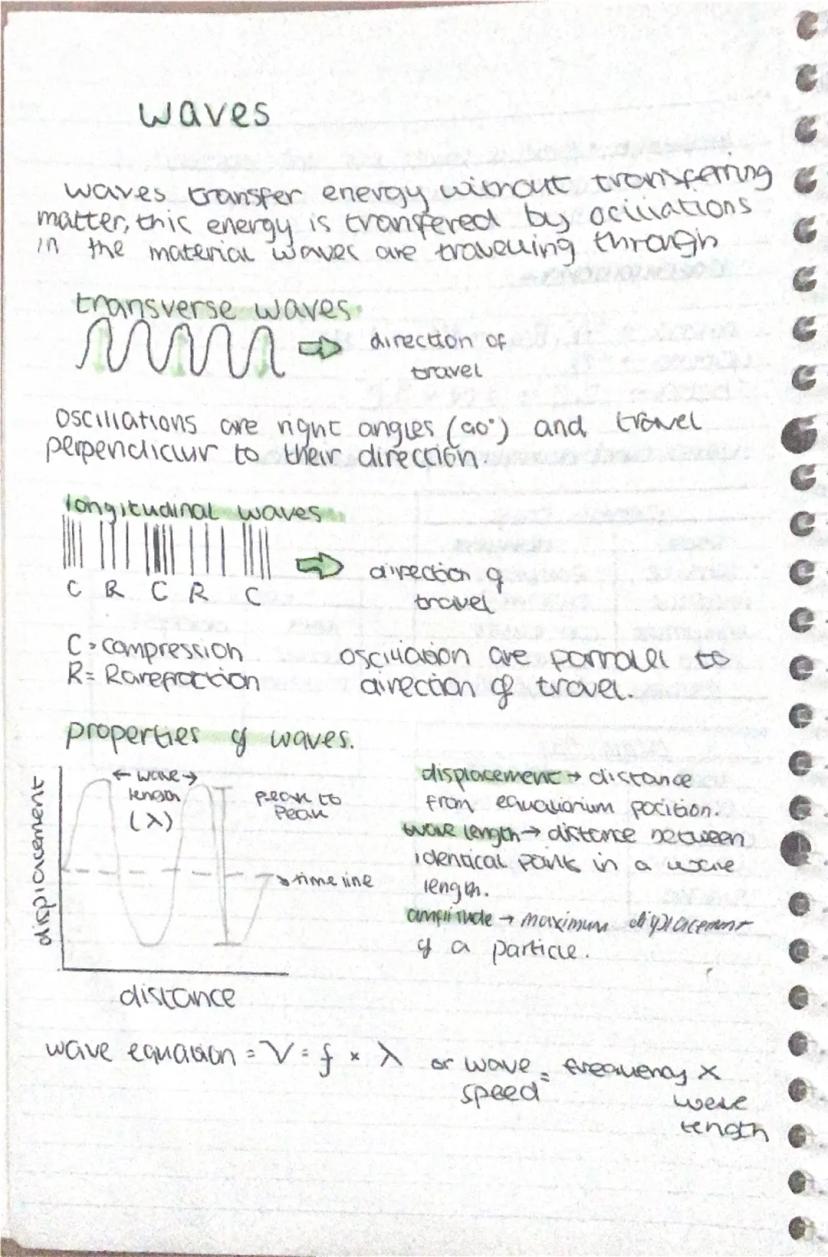 waves
waves transfer energy without transferring
matter, this energy is transfered by ocillations
in the material waves are travelling through
transverse waves.
direction of
travel
oscillations are right angles (90°) and travel
perpendiclur to their direction.
longitudinal waves
C R C R C
direction of
travel
C = compression
R = Rarefraction
oscillation are parrallel to
direction of travel.
properties of waves.
displacement
← wave →
length
(λ)
peak to
peak
time line
distance
displacement → distance
from equilibrium position.
wave length → distance between
identical points in a wave
length.
amplitude → maximum displacement
of a particle.
wave equation = V = f × λ or wave = frequency ×
speed wave
length